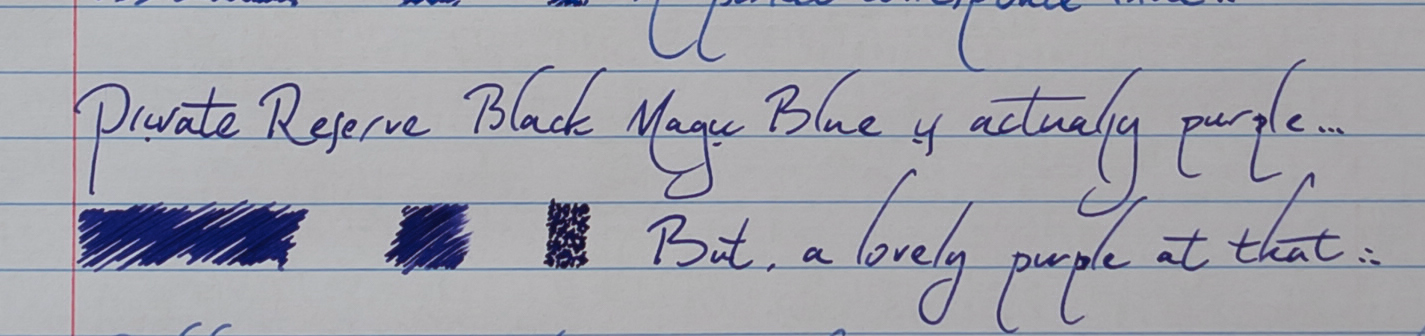 Private Reserve Black Magic Blue is actually purple...
But, a lovely purple at that :